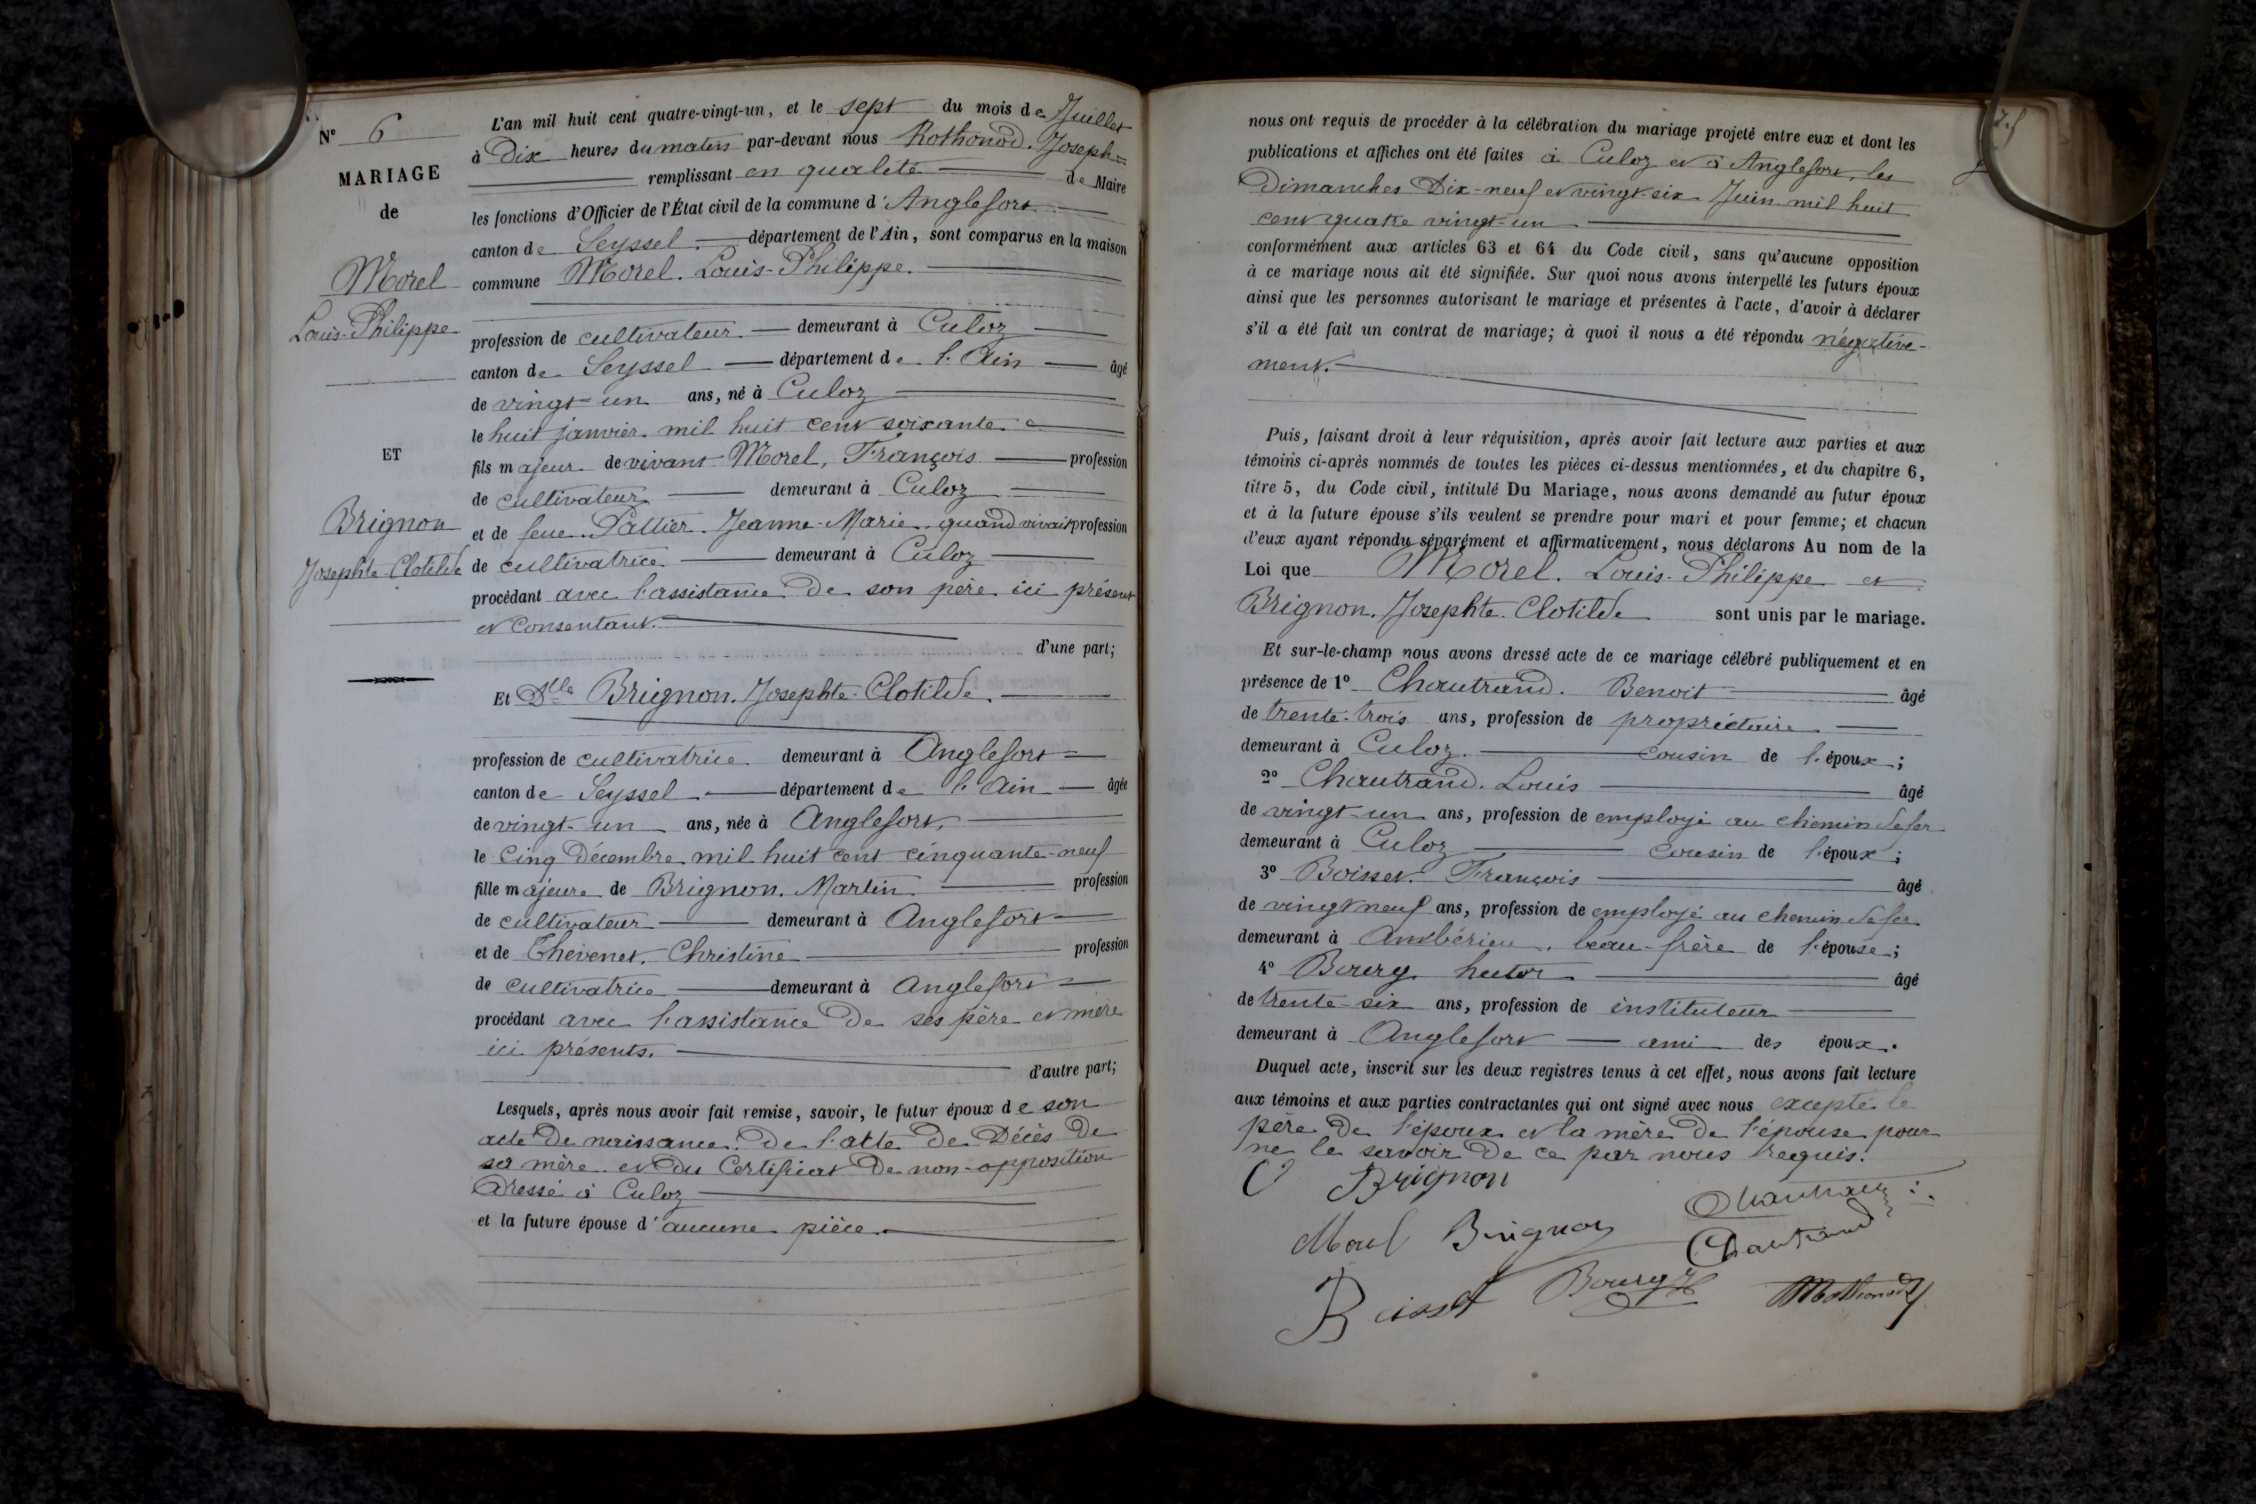 N° 6
MARIAGE
de
Morel
Louis-Philippe
ET
Brignon
Josephte Clotilde
L'an mil huit cent quatre-vingt-un, et le sept du mois de Juillet
à Dix heures du matin par-devant nous Rothonod. Joseph =
remplissant en qualité de Maire
les fonctions d'Officier de l'État civil de la commune d'Anglefort
canton de Seyssel département de l'Ain, sont comparus en la maison
commune Morel. Louis-Philippe.
profession de cultivateur demeurant à Culoz
canton de Seyssel département de l'Ain âgé
de vingt-un ans, né à Culoz
le huit janvier mil huit cent soixante
fils majeur de vivant Morel, François profession
de cultivateur demeurant à Culoz
et de feue Jeanne-Marie quand vivait profession
de cultivatrice demeurant à Culoz
procédant avec l'assistance de son père ici présent
et consentant.
d'une part;
Et Dlle Brignon. Josephte-Clotilde.
profession de cultivatrice demeurant à Anglefort
canton de Seyssel département de l'Ain âgée
de vingt-un ans, née à Anglefort.
le cinq Décembre mil huit cent cinquante-neuf
fille majeure de Brignon. Martin profession
de cultivateur demeurant à Anglefort
et de Thevenet. Christine profession
de cultivatrice demeurant à Anglefort
procédant avec l'assistance de ses père et mère
ici présents.
d'autre part;
Lesquels, après nous avoir fait remise, savoir, le futur époux de son
acte de naissance. de l'acte de Décès de
sa mère et du Certificat de non-opposition
dressé à Culoz
et la future épouse d'aucune pièce.
nous ont requis de procéder à la célébration du mariage projeté entre eux et dont les
publications et affiches ont été faites à Culoz et à Anglefort, les
Dimanches Dix-neuf et vingt-six Juin mil huit
cent quatre vingt-un
conformément aux articles 63 et 64 du Code civil, sans qu'aucune opposition
à ce mariage nous ait été signifiée. Sur quoi nous avons interpellé les futurs époux
ainsi que les personnes autorisant le mariage et présentes à l'acte, d'avoir à déclarer
s'il a été fait un contrat de mariage; à quoi il nous a été répondu négative-
ment.
Puis, faisant droit à leur réquisition, après avoir fait lecture aux parties et aux
témoins ci-après nommés de toutes les pièces ci-dessus mentionnées, et du chapitre 6,
titre 5, du Code civil, intitulé Du Mariage, nous avons demandé au futur époux
et à la future épouse s'ils veulent se prendre pour mari et pour femme; et chacun
d'eux ayant répondu séparément et affirmativement, nous déclarons Au nom de la
Loi que Morel. Louis-Philippe et
Brignon. Josephte-Clotilde sont unis par le mariage.
Et sur-le-champ nous avons dressé acte de ce mariage célébré publiquement et en
présence de 1° Chautrand. Benoit âgé
de trente-trois ans, profession de propriétaire
demeurant à Culoz cousin de l'époux;
2° Chautrand. Louis âgé
de vingt-un ans, profession de employé au chemin de fer
demeurant à Culoz cousin de l'époux;
3° Boisset. François âgé
de vingt neuf ans, profession de employé au chemin de fer
demeurant à Ambérieu, beau-frère de l'épouse;
4° Boury hector âgé
de trente-six ans, profession de instituteur
demeurant à Anglefort ami des époux.
Duquel acte, inscrit sur les deux registres tenus à cet effet, nous avons fait lecture
aux témoins et aux parties contractantes qui ont signé avec nous excepté le
père de l'époux et la mère de l'épouse pour
ne le savoir de ce par nous requis.
C Brignon
Morel Brignon Chautrand
Chautrand
Boisset Boury H Rothonod J